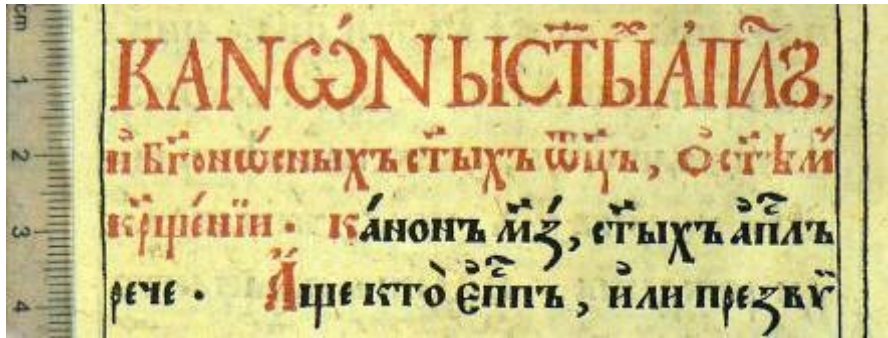 КАNѠ́N Ы СТ҃Ы́Й А҆ПЛ҃З,
и҆ Бг҃онѡ́сныхъ ст҃ыхъ ѿц҃ъ, ѻ҆ ст҃ѣм̾
кр҃ще́нїи. ка́нонъ м҃з, ст҃ыхъ а҆пⷭ҇лъ
рече. А҆́ще кто̀ є҆пⷭ҇пъ, и҆ли презвѵ̈